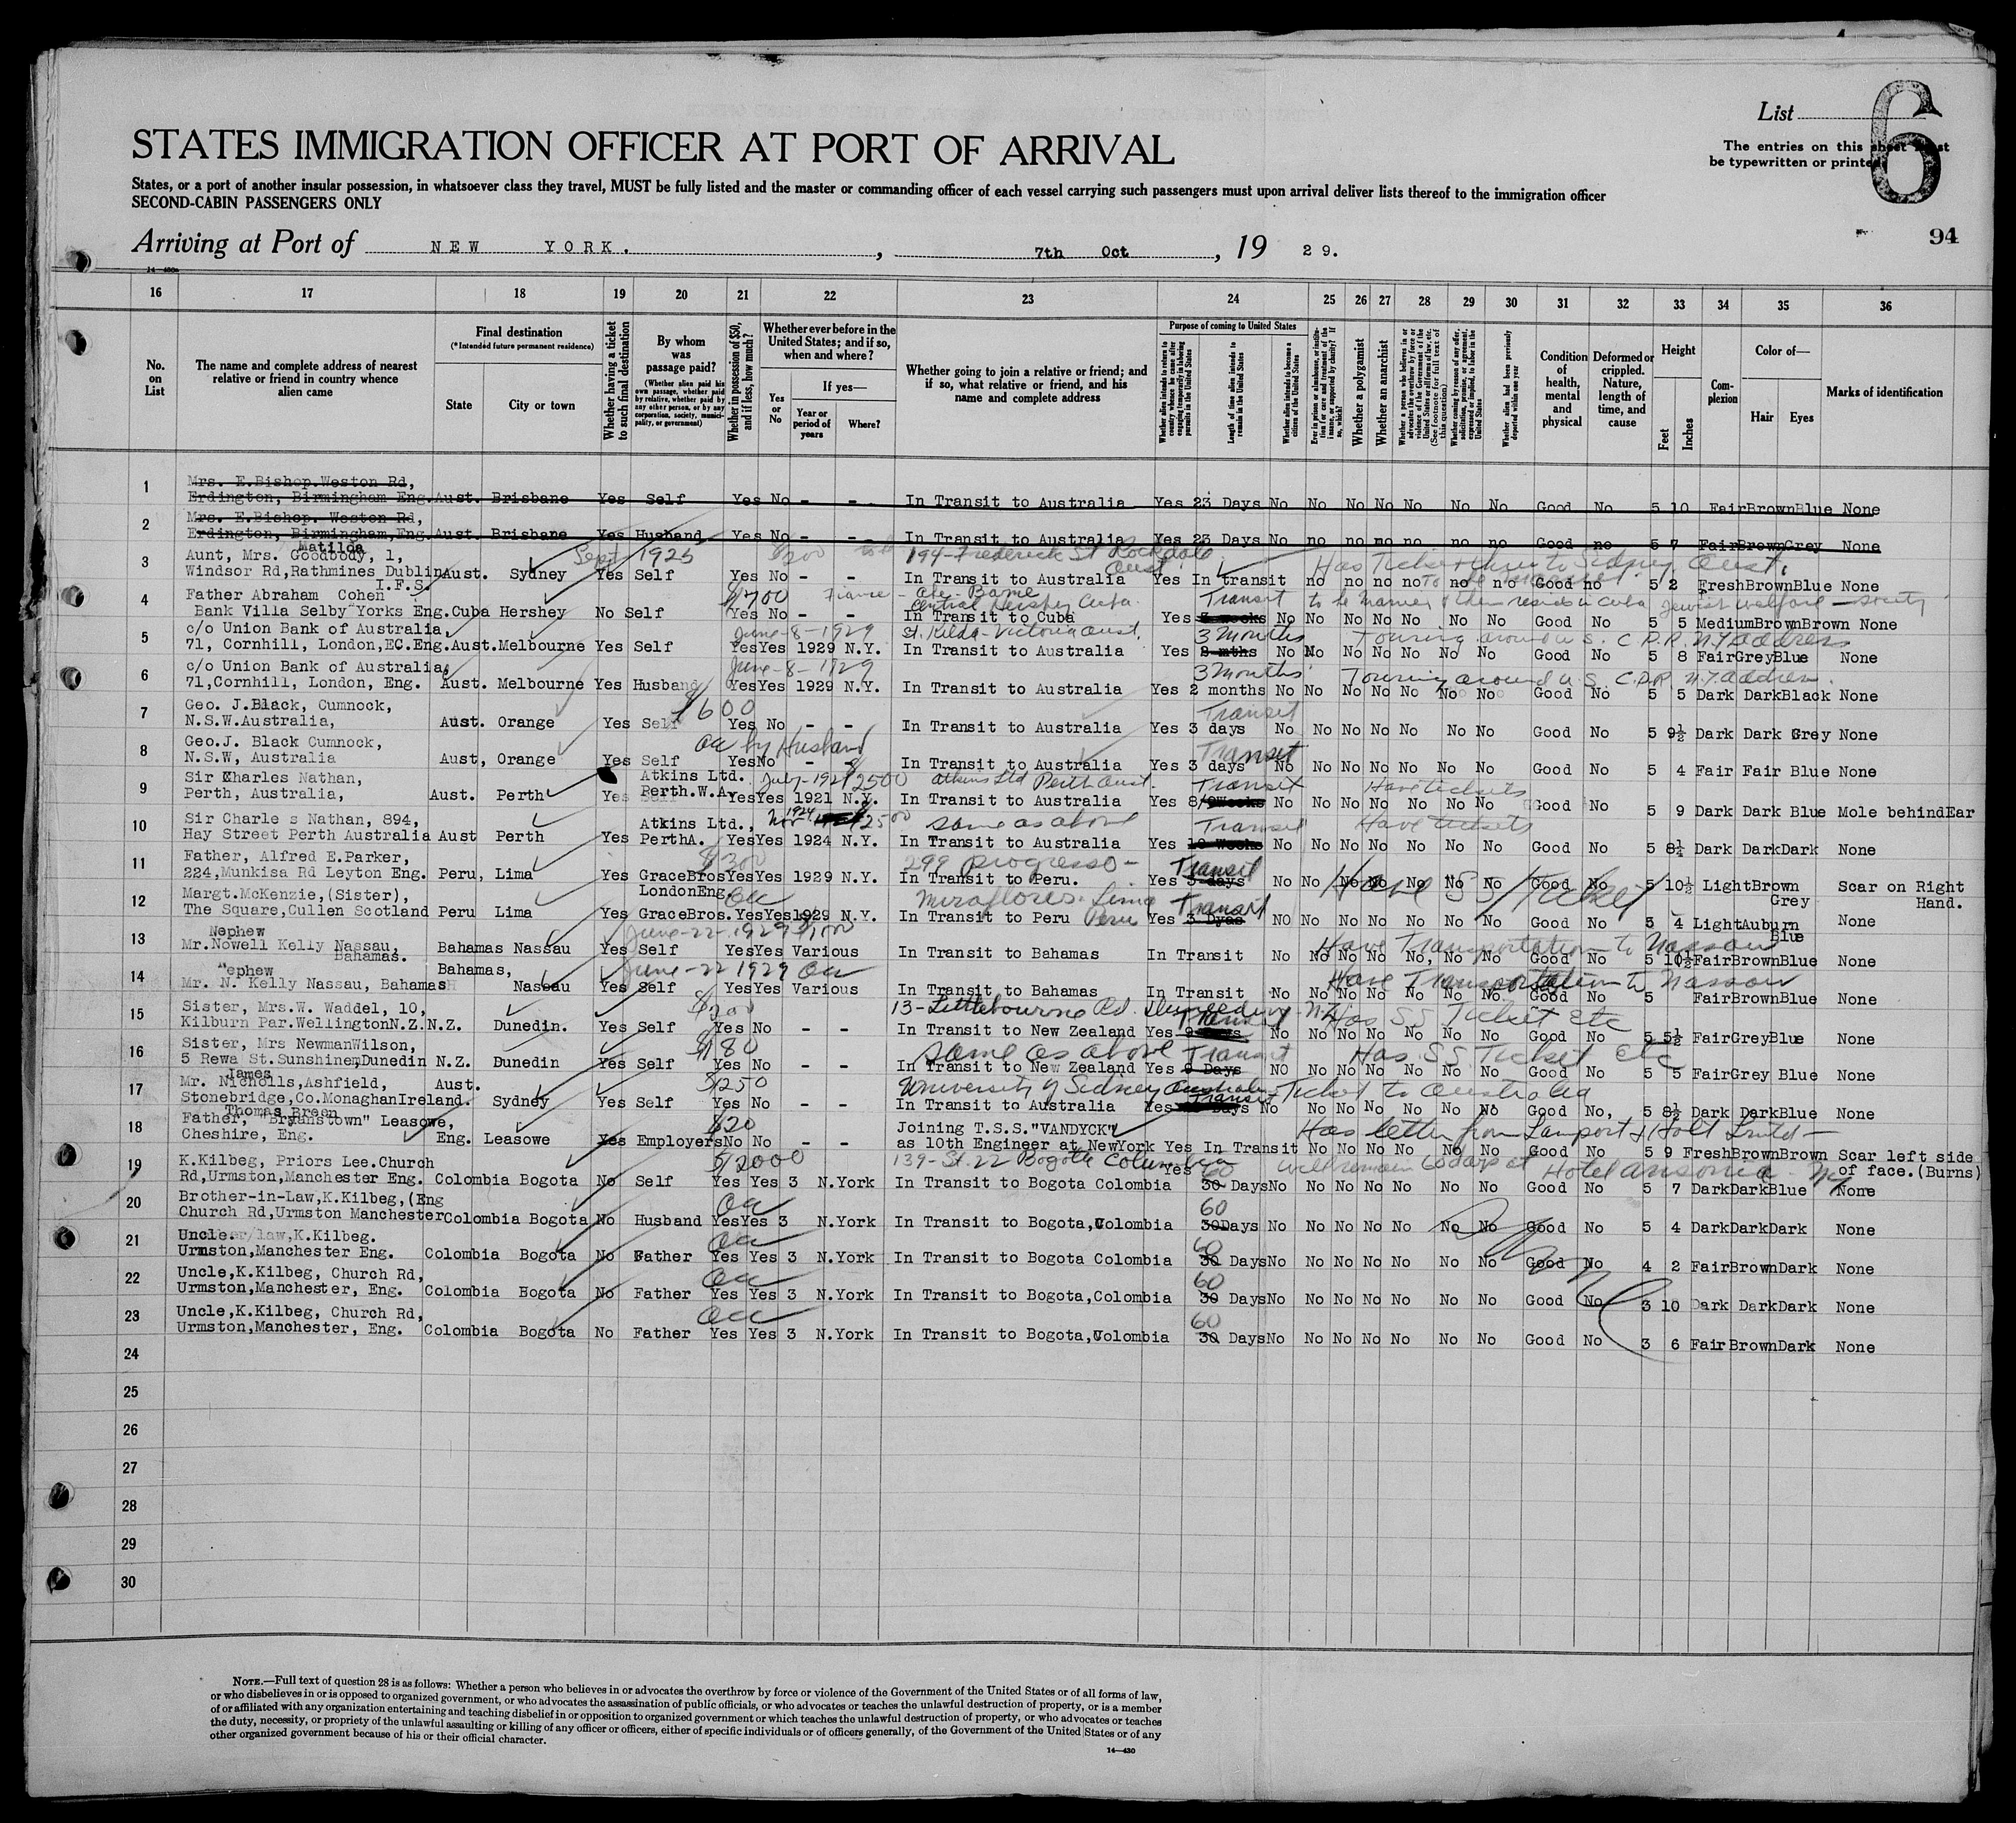 List
6
The entries on this sheet must
be typewritten or printed
STATES IMMIGRATION OFFICER AT PORT OF ARRIVAL
States, or a port of another insular possession, in whatsoever class they travel, MUST be fully listed and the master or commanding officer of each vessel carrying such passengers must upon arrival deliver lists thereof to the immigration officer
SECOND-CABIN PASSENGERS ONLY
94
Arriving at Port of NEW YORK. , 7th Oct , 19 29.
16 17 18 19 20 21 22 23 24 25 26 27 28 29 30 31 32 33 34 35 36
No. on List
The name and complete address of nearest relative or friend in country whence alien came
Final destination
(*Intended future permanent residence)
State City or town
Whether having a ticket to such final destination
By whom was passage paid?
(Whether alien paid his own passage, whether paid by relative, whether paid by any other person, or by any corporation, society, municipality, or government)
Whether in possession of $50, and if less, how much?
Whether ever before in the United States; and if so, when and where?
Yes or No
If yes—
Year or period of years Where?
Whether going to join a relative or friend; and if so, what relative or friend, and his name and complete address
Purpose of coming to United States
Whether alien intends to return to country whence he came after engaging temporarily in laboring pursuits in the United States
Length of time alien intends to remain in the United States
Whether alien intends to become a citizen of the United States
Ever in prison or almshouse, or institution for care and treatment of the insane, or supported by charity? If so, which?
Whether a polygamist
Whether an anarchist
Whether a person who believes in or advocates the overthrow by force or violence of the Government of the United States or all forms of law, etc. (See footnote for full text of this question)
Whether coming by reason of any offer, solicitation, promise, or agreement, expressed or implied, to labor in the United States
Whether alien had been previously deported within one year
Condition of health, mental and physical
Deformed or crippled. Nature, length of time, and cause
Height
Feet Inches
Complexion
Color of—
Hair Eyes
Marks of identification
1 Mrs. E.Bishop.Weston Rd,
Erdington, Birmingham Eng. Aust. Brisbane Yes Self Yes No - - In Transit to Australia Yes 23 Days No No No No No No No Good No 5 10 Fair Brown Blue None
2 Mrs. E.Bishop. Weston Rd,
Erdington, Birmingham,Eng. Aust. Brisbane Yes Husband Yes No - - In Transit to Australia Yes 23 Days No no no no no no no Good no 5 7 Fair Brown Grey None
Matilda Sept 1925 $200 199-Frederick St Rockdale Aust. Has Ticket thru to Sidney Aust.
3 Aunt, Mrs. Goodbody, 1,
Windsor Rd,Rathmines Dublin Aust. Sydney Yes Self Yes No - - In Transit to Australia Yes In transit no no no no no no Good no 5 2 Fresh Brown Blue None
I.F.S.
$700 Fiance - Abe. Bame Central Hershey Cuba. Transit to be married & then reside in Cuba Jewish welfare society
4 Father Abraham Cohen
Bank Villa Selby Yorks Eng. Cuba Hershey No Self Yes No - - In Transit to Cuba Yes 2 weeks No No No No No No No Good No 5 5 Medium Brown Brown None
June-8-1929 St. Kilda-Victoria Aust. 3 Months Touring around U.S. C.P.R. N.Y. address
5 c/o Union Bank of Australia,
71, Cornhill, London,EC.Eng. Aust. Melbourne Yes Self Yes Yes 1929 N.Y. In Transit to Australia Yes 2 mths No No No No No No No Good No 5 8 Fair Grey Blue None
June-8-1929 3 Months Touring around U.S. C.P.R. N.Y. address.
6 c/o Union Bank of Australia,
71,Cornhill, London, Eng. Aust. Melbourne Yes Husband Yes Yes 1929 N.Y. In Transit to Australia Yes 2 months No No No No No No No Good No 5 5 Dark Dark Black None
$600 Transit
7 Geo. J.Black, Cumnock,
N.S.W.Australia, Aust. Orange Yes Self Yes No - - In Transit to Australia Yes 3 days No No No No No No No Good No 5 9½ Dark Dark Grey None
oa by Husband Transit
8 Geo.J. Black Cumnock,
N.S.W, Australia Aust, Orange Yes Self Yes No - - In Transit to Australia Yes 3 days No No No No No No No Good No 5 4 Fair Fair Blue None
July-1921 $2500 Atkins Ltd Perth Aust. Transit Have tickets
9 Sir Charles Nathan, Atkins Ltd.
Perth, Australia, Aust. Perth Yes Perth.W.A. Yes Yes 1921 N.Y. In Transit to Australia Yes Weeks No No No No No No No Good No 5 9 Dark Dark Blue Mole behind Ear
Nov 1924 $2500 same as above Transit Have tickets
10 Sir Charle s Nathan, 894, Atkins Ltd.,
Hay Street Perth Australia Aust Perth Yes PerthA. Yes Yes 1924 N.Y. In Transit to Australia Yes 10 Weeks No No No No No No No Good No 5 8¼ Dark Dark Dark None
$300 299 progresso - Transit Have S S Ticket
11 Father, Alfred E.Parker,
224,Munkisa Rd Leyton Eng. Peru, Lima Yes GraceBros Yes Yes 1929 N.Y. In Transit to Peru. Yes 3 days No No No No No No No Good No 5 10½ Light Brown Grey Scar on Right Hand.
London Eng. oa Miraflores. Lima Peru Transit
12 Margt.McKenzie,(Sister),
The Square,Cullen Scotland Peru Lima Yes GraceBros. Yes Yes 1929 N.Y. In Transit to Peru Yes 3 Dyas NO No No No No No No Good No 5 4 Light Auburn Blue None
Nephew June-22-1929 $1,000 Have Transportation to Nassau
13 Mr.Nowell Kelly Nassau, Bahamas. Bahamas Nassau Yes Self Yes Yes Various In Transit to Bahamas In Transit No No No No No, No No Good No 5 10½ Fair Brown Blue None
Nephew June-22 1929 oa Have Transportation to Nassau
14 Mr. N. Kelly Nassau, Bahamas Bahamas, Nassau Yes Self Yes Yes Various In Transit to Bahamas In Transit No No No No No No No. Good No 5 Fair Brown Blue None
$200 13-Littlebourne Rd. Dunedin-NZ Transit Has SS Ticket etc
15 Sister, Mrs.W. Waddel, 10,
Kilburn Par.WellingtonN.Z. N.Z. Dunedin. Yes Self Yes No - - In Transit to New Zealand Yes 9 Days No No No No No No No Good No 5 5½ Fair Grey Blue None
$180 same as above Transit Has SS Ticket etc
16 Sister, Mrs NewmanWilson,
5 Rewa St.Sunshine,Dunedin N.Z. Dunedin Yes Self Yes No - - In Transit to New Zealand Yes 9 Days NO No No No No No No Good No 5 5 Fair Grey Blue None
James $250 University of Sidney Australia Transit Ticket to Australia
17 Mr. Nicholls,Ashfield, Aust.
Stonebridge,Co.MonaghanIreland. Sydney Yes Self Yes No - - In Transit to Australia Yes Days No No No No No No No Good No, 5 8½ Dark Dark Blue None
Thomas Breen $20 Has letter from Lamport & Holt Limtd-
18 Father, "Bryanstown" Leasowe, Joining T.S.S."VANDYCK"
Cheshire, Eng. Eng. Leasowe Yes Employers No No - - as 10th Engineer at NewYork Yes In Transit No No No No No No No Good No 5 9 Fresh Brown Brown Scar left side of face.(Burns)
$2000 139-St.22 Bogota Columbia Yes 60 will remain 60 days at Hotel Ansonia - NY
19 K.Kilbeg, Priors Lee.Church
Rd,Urmston,Manchester Eng. Colombia Bogota No Self Yes Yes 3 N.York In Transit to Bogota Colombia 30 Days No No No No No No No Good No 5 7 Dark Dark Blue None
oa 60
20 Brother-in-Law,K.Kilbeg,(Eng
Church Rd,Urmston Manchester Colombia Bogota No Husband Yes Yes 3 N.York In Transit to Bogota,Colombia 30Days No No No No No No No Good No 5 4 Dark Dark Dark None
oa 60
21 Uncle law,K.Kilbeg.
Urmston,Manchester Eng. Colombia Bogota No Father Yes Yes 3 N.York In Transit to Bogota Colombia 30 Days No No No No No No No Good No 4 2 Fair Brown Dark None
oa 60
22 Uncle,K.Kilbeg, Church Rd,
Urmston,Manchester, Eng. Colombia Bogota No Father Yes Yes 3 N.York In Transit to Bogota,Colombia 30 Days No No No No No No No Good No 3 10 Dark Dark Dark None
oa 60
23 Uncle,K.Kilbeg, Church Rd,
Urmston,Manchester, Eng. Colombia Bogota No Father Yes Yes 3 N.York In Transit to Bogota,Colombia 30 Days No No No No No No No Good No 3 6 Fair Brown Dark None
24
25
26
27
28
29
30
NOTE.—Full text of question 28 is as follows: Whether a person who believes in or advocates the overthrow by force or violence of the Government of the United States or of all forms of law,
or who disbelieves in or is opposed to organized government, or who advocates the assassination of public officials, or who advocates or teaches the unlawful destruction of property, or is a member
of or affiliated with any organization entertaining and teaching disbelief in or opposition to organized government or which teaches the unlawful destruction of property, or who advocates or teaches
the duty, necessity, or propriety of the unlawful assaulting or killing of any officer or officers, either of specific individuals or of officers generally, of the Government of the United States or of any
other organized government because of his or their official character.
14—430